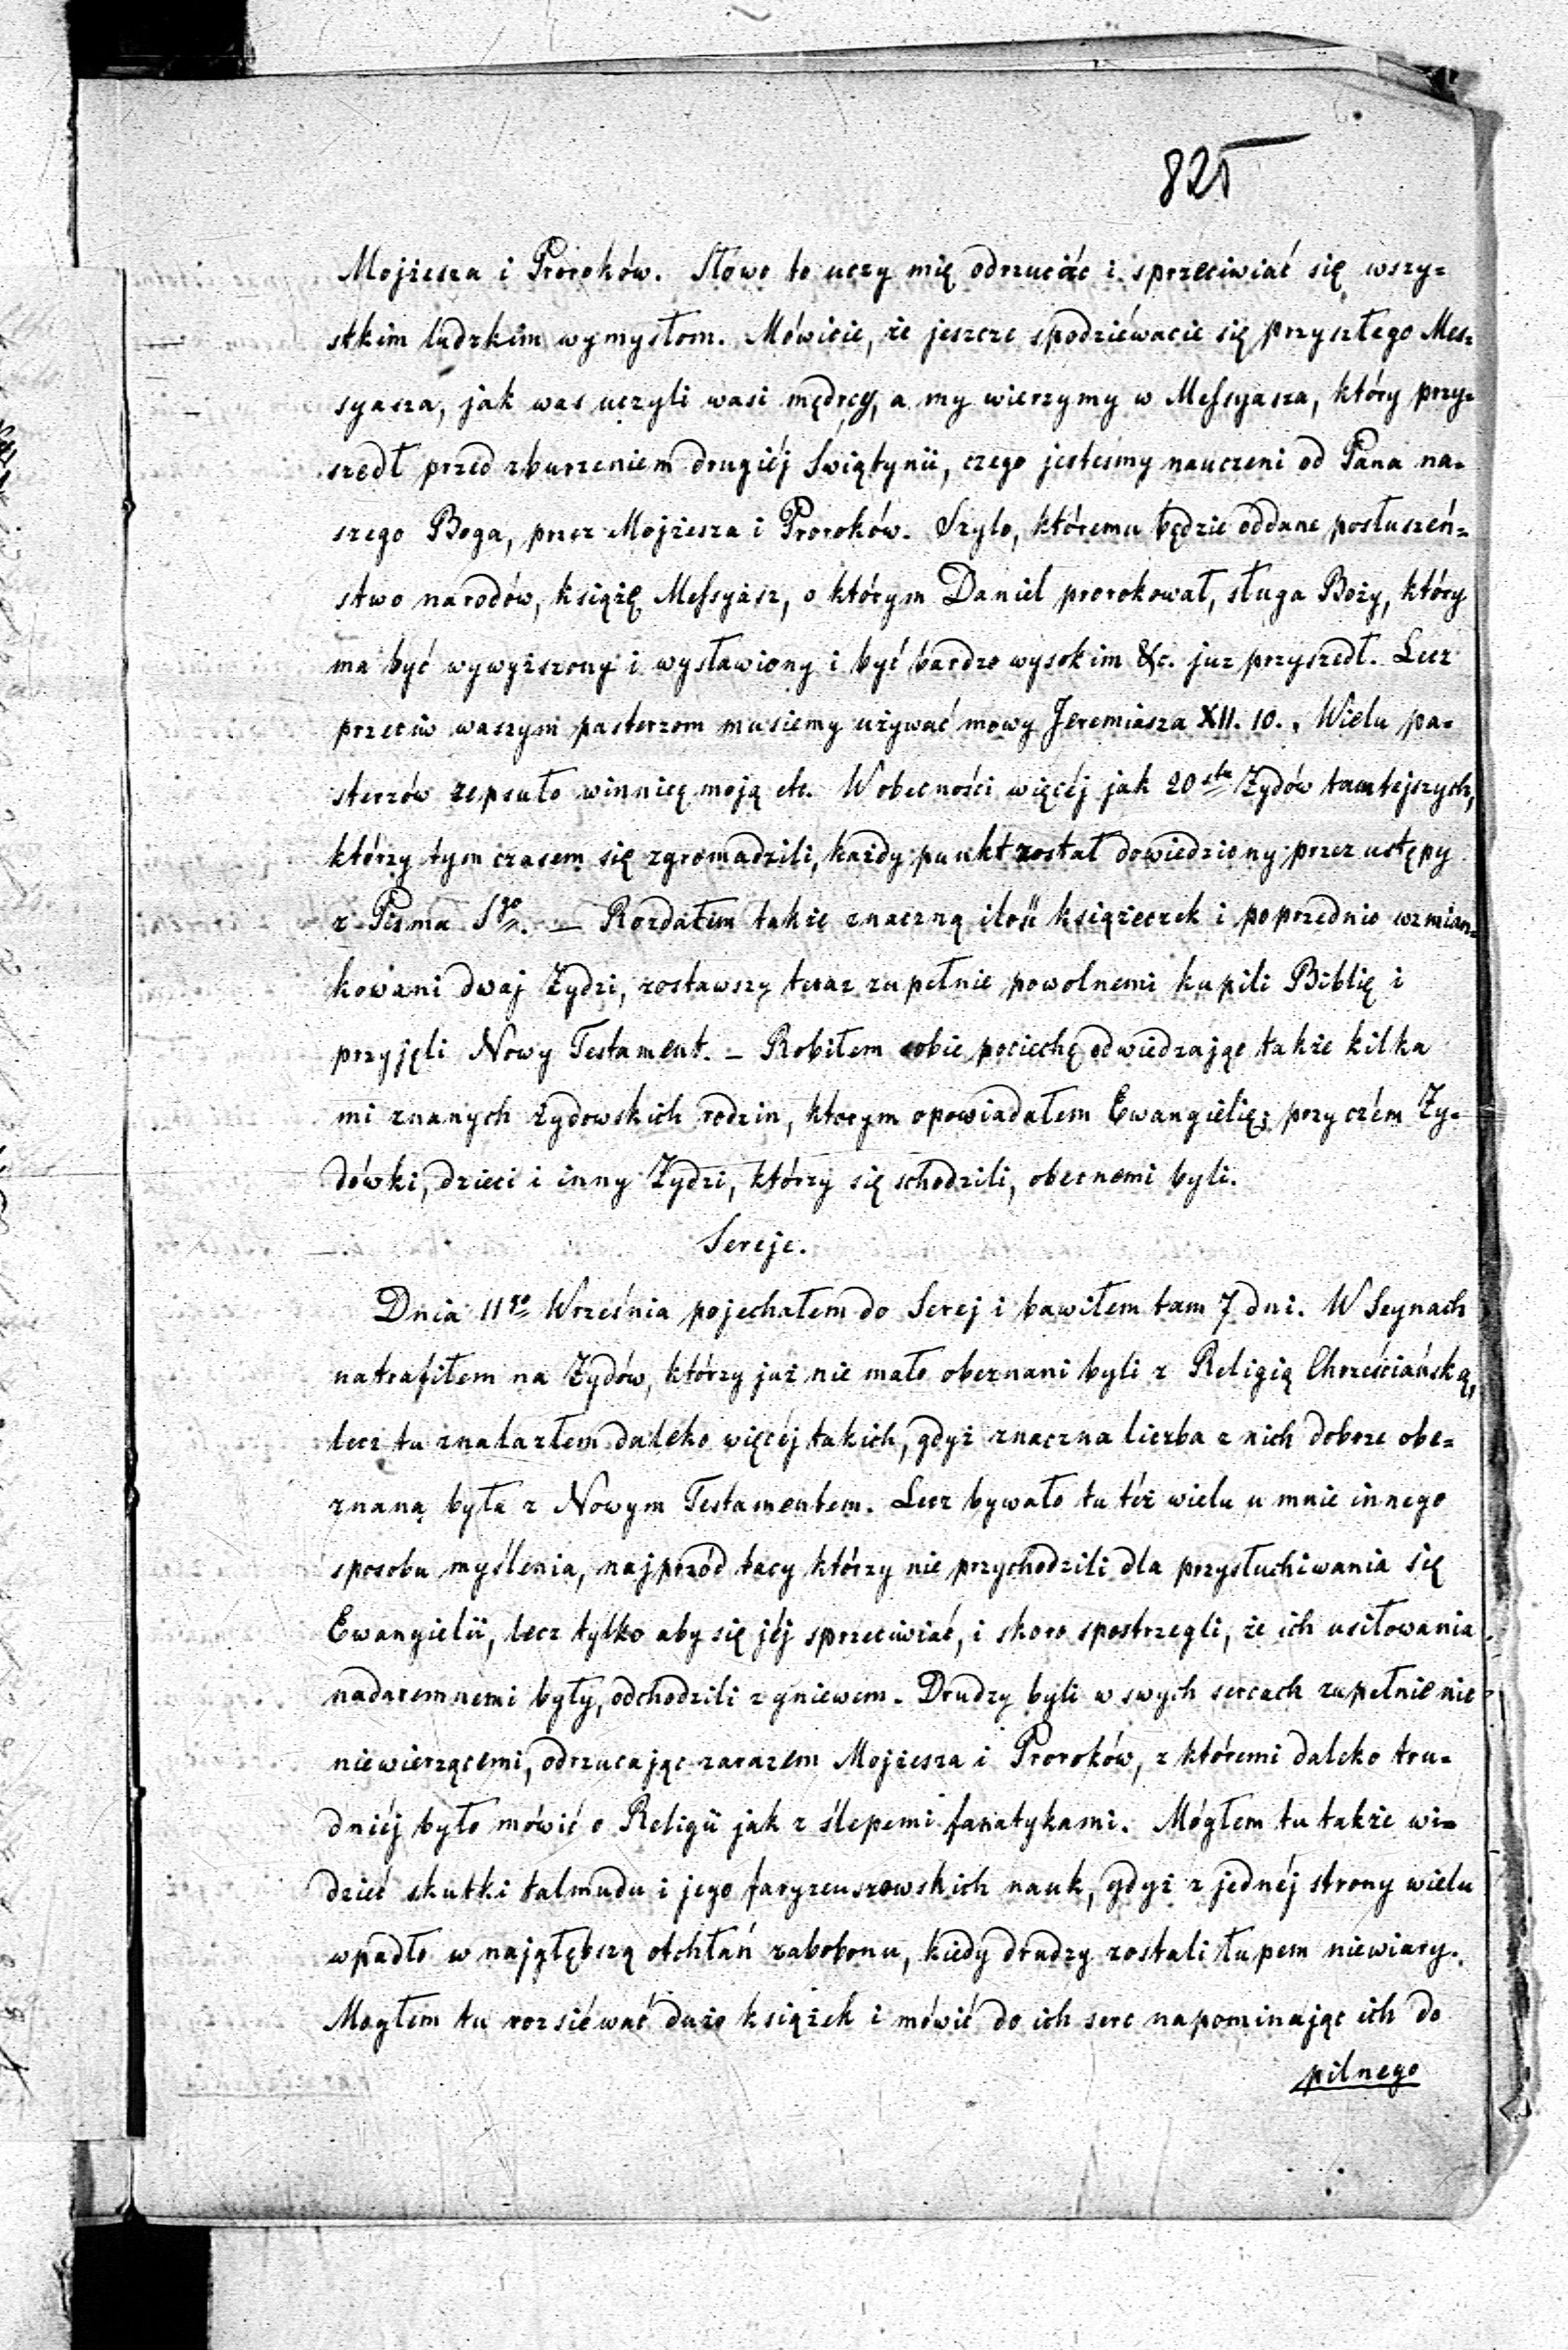 825
Mojżesza i Proroków. Słowo to uczy mię odrzucać i sprzeciwiać się wszy=
stkim ludzkim wymysłom. Mówicie, że jeszcze spodziéwacie się przyszłego Mes=
syasza, jak was uczyli wasi mędrcy, a my wierzymy w Messyasza, który przy=
szedł przed zburzeniem drugiéj Świątynii, czego jesteśmy nauczeni od Pana na=
szego Boga, przez Mojżesza i Proroków. Szylo, któremu będzie oddane posłuszeń=
stwo narodów, książę Messyasz, o którym Daniel prorokował, sługa Boży, który
ma być wywyższony i wysławiony i być bardzo wysokim &c. juz przyszedł. Lecz
przeciw waszym pasterzom musiemy używać mowy Jeremiasza XII. 10. Wielu pa=
sterzów zepsuło winnicę moją etc. W obecności więcéj jak 20stu Żydów tamtejszych,
którzy tym czasem się zgromadzili, każdy punkt został dowiedziony przez ustępy
z Pisma Sgo. — Rozdałem także znaczną ilość książeczek i poprzednio wzmian=
kowani dwaj Żydzi, zostawszy teraz zupełnie powolnemi kupili Biblię i
przyjęli Nowy Testament. — Robiłem sobie pociechę odwiedzając także kilka
mi znanych żydowskich rodzin, ktorym opowiadałem Ewangielię; przy czém Ży=
dówki, dzieci i inny Żydzi, którzy się schodzili, obecnemi byli.
Sereje.
Dnia 11go Września pojechałem do Serej i bawiłem tam 7 dni. W Seynach
natrafiłem na Żydów, którzy już nie mało obeznani byli z Religią Chrześciańską,
lecz tu znalazłem daleko więcéj takich, gdyż znaczna liczba z nich dobrze obe=
znaną była z Nowym Testamentem. Lecz bywało tu téż wielu u mnie innego
sposobu myślenia, najprzód tacy którzy nie przychodzili dla przysłuchiwania się
Ewangielii, lecz tylko aby się jéj sprzeciwiać, i skoro spostrzegli, że ich usiłowania
nadaremnemi były, odchodzili z gniewem. Drudzy byli w swych sercach zupełnie nie=
niewierzącemi, odrzucając zarazem Mojżesza i Proroków, z któremi daleko tru=
dniéj było mówić o Religii jak z ślepemi fanatykami. Mógłem tu także wi=
dzieć skutki talmudu i jego faryzeuszowskich nauk, gdyż z jednéj strony wielu
wpadło w najgłębszą otchłań zabobonu, kiedy drudzy zostali łupem niewiary.
Mogłem tu rozsiéwać dużo książek i mówić do ich serc napominając ich do
pilnego